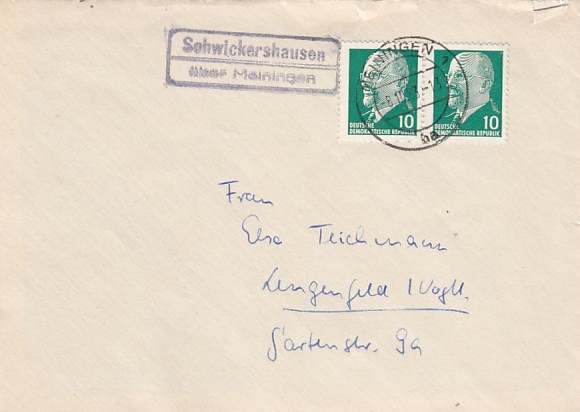 Schwickershausen
über Meiningen
MEININGEN 1
ba
10
DEUTSCHE
DEMOKRATISCHE REPUBLIK
10
DEUTSCHE
DEMOKRATISCHE REPUBLIK
Frau
Else Teichmann
Lengenfeld / Vogtl.
Gartenstr. 9a